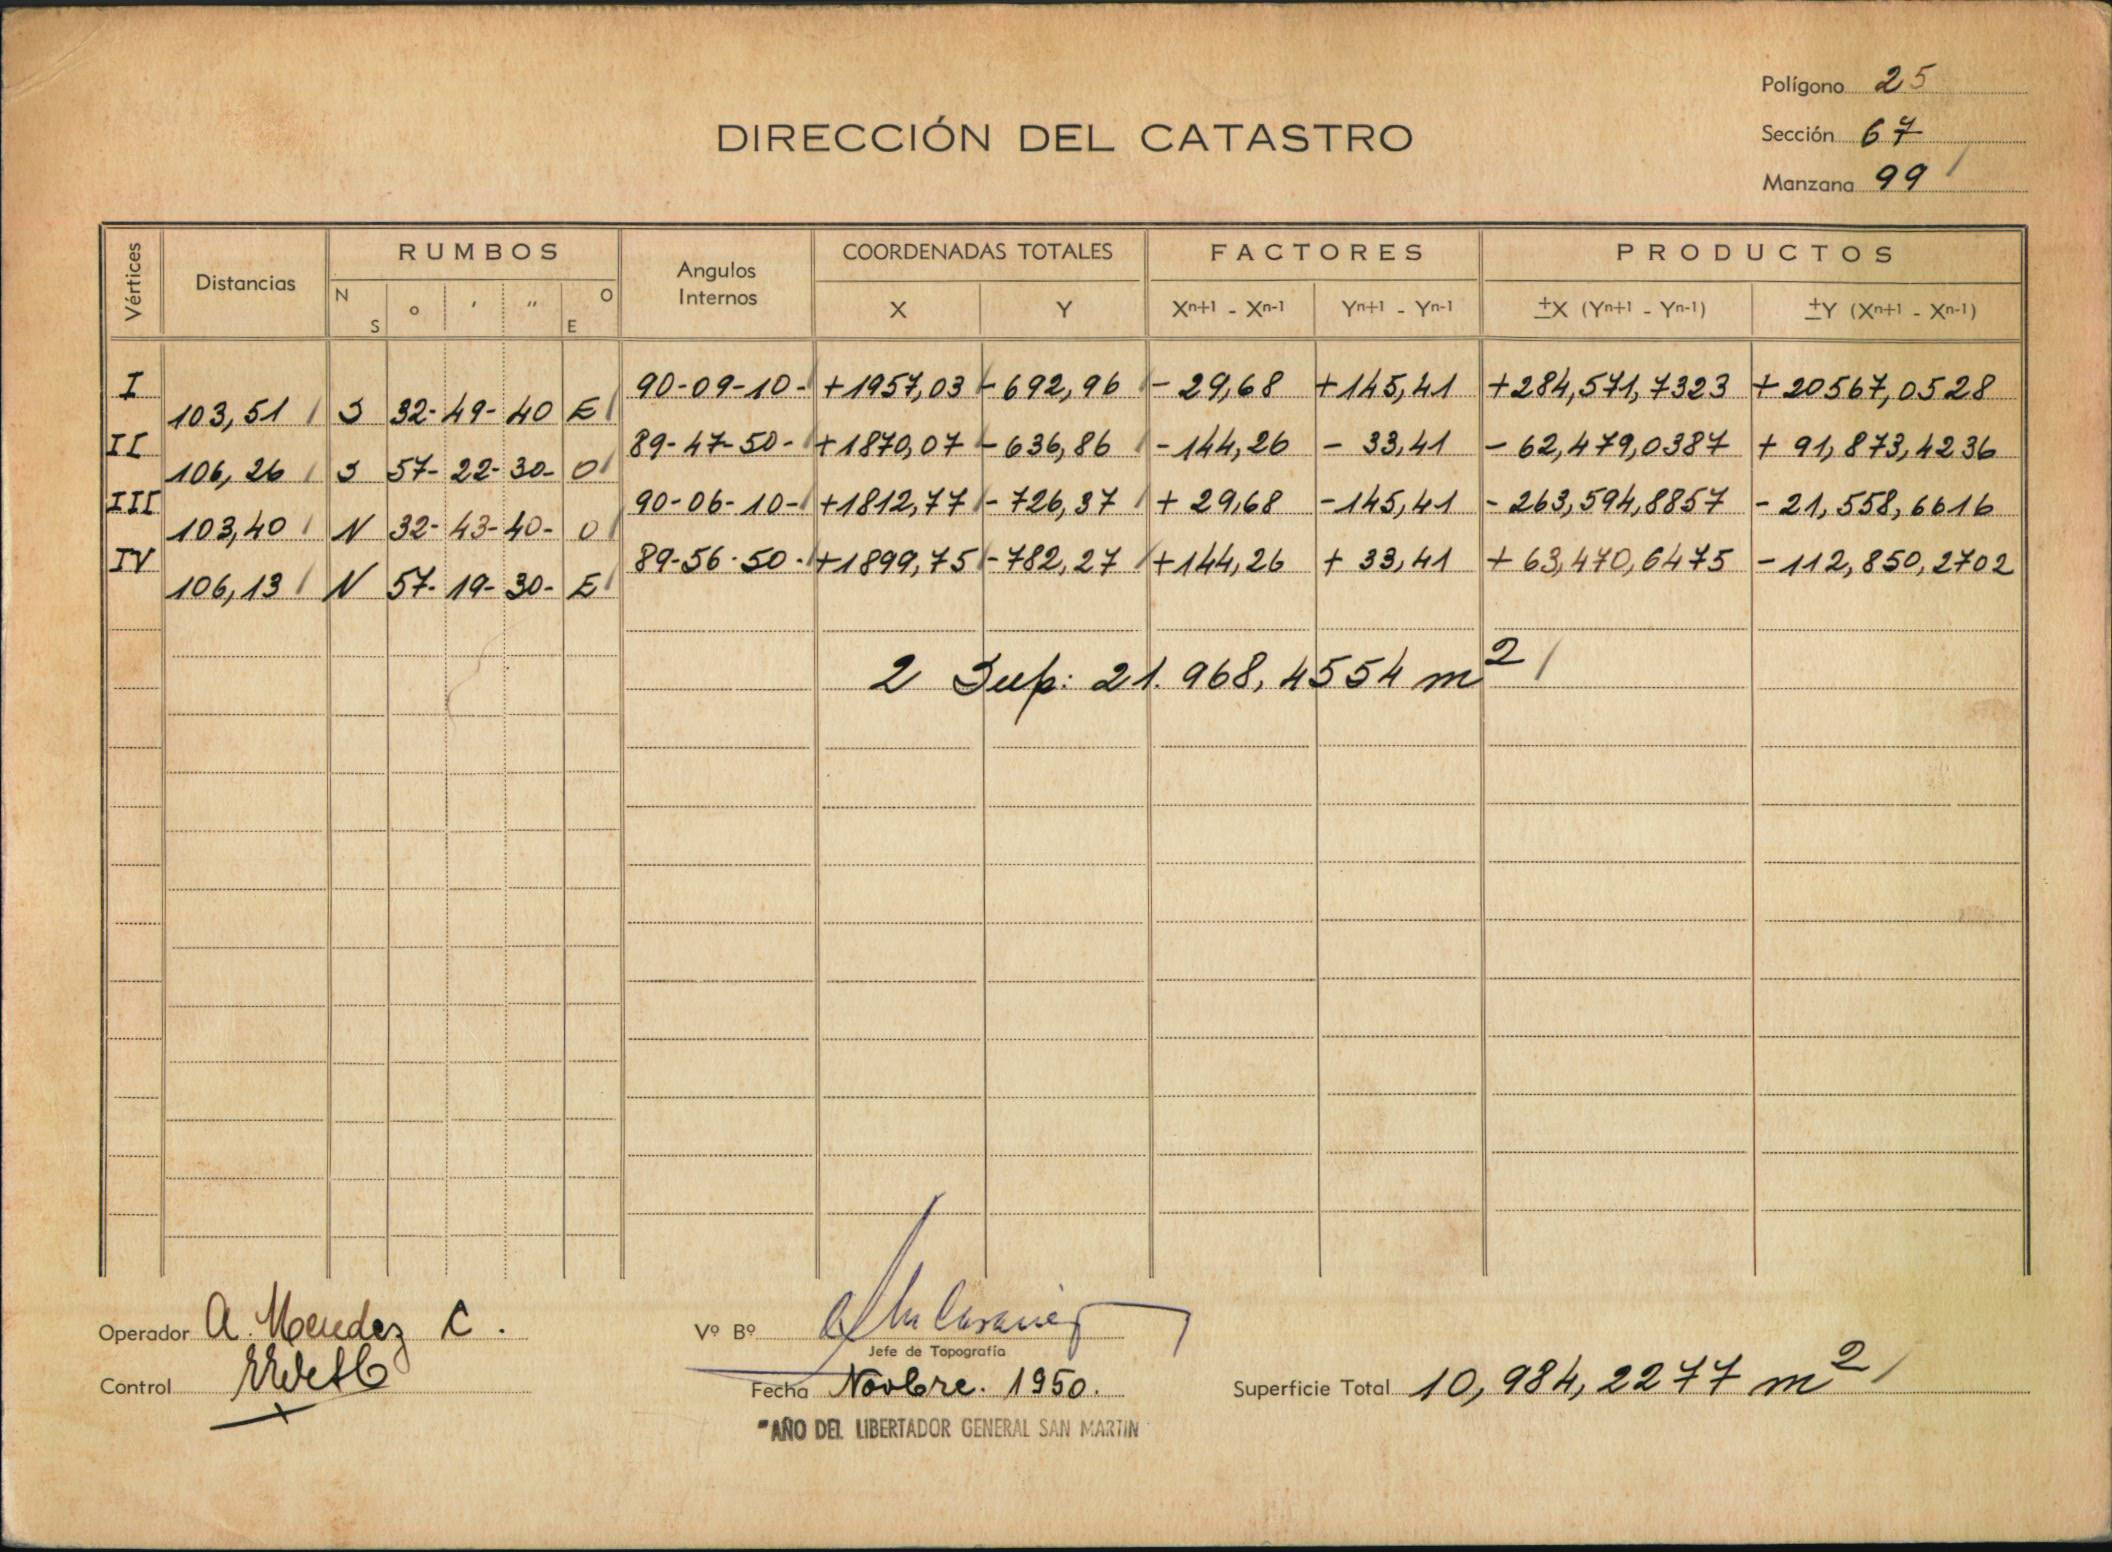 Polígono 25
DIRECCIÓN DEL CATASTRO
Sección 67
Manzana 99
Vértices Distancias RUMBOS Angulos Internos COORDENADAS TOTALES FACTORES PRODUCTOS
N S ° ' " O E X Y Xn+1 - Xn-1 Yn+1 - Yn-1 ±X (Yn+1 - Yn-1) ±Y (Xn+1 - Xn-1)
I 90-09-10- +1957,03 -692,96 -29,68 +145,41 +284,571,7323 +20567,0528
103,51 S 32-49-40 E
II 89-47-50- +1870,07 -636,86 -144,26 -33,41 -62,479,0387 +91,873,4236
106,26 S 57-22-30- O
III 90-06-10- +1812,77 -726,37 +29,68 -145,41 -263,594,8857 -21,558,6616
103,40 N 32-43-40- O
IV 89-56-50- +1899,75 -782,27 +144,26 +33,41 +63,470,6475 -112,850,2702
106,13 N 57-19-30- E
2 Sup: 21.968,4554 m²
Operador A. Mendez C.
Vº Bº
Jefe de Topografía
Control
Fecha Novbre. 1950.
Superficie Total 10,984,2277 m²
"AÑO DEL LIBERTADOR GENERAL SAN MARTIN